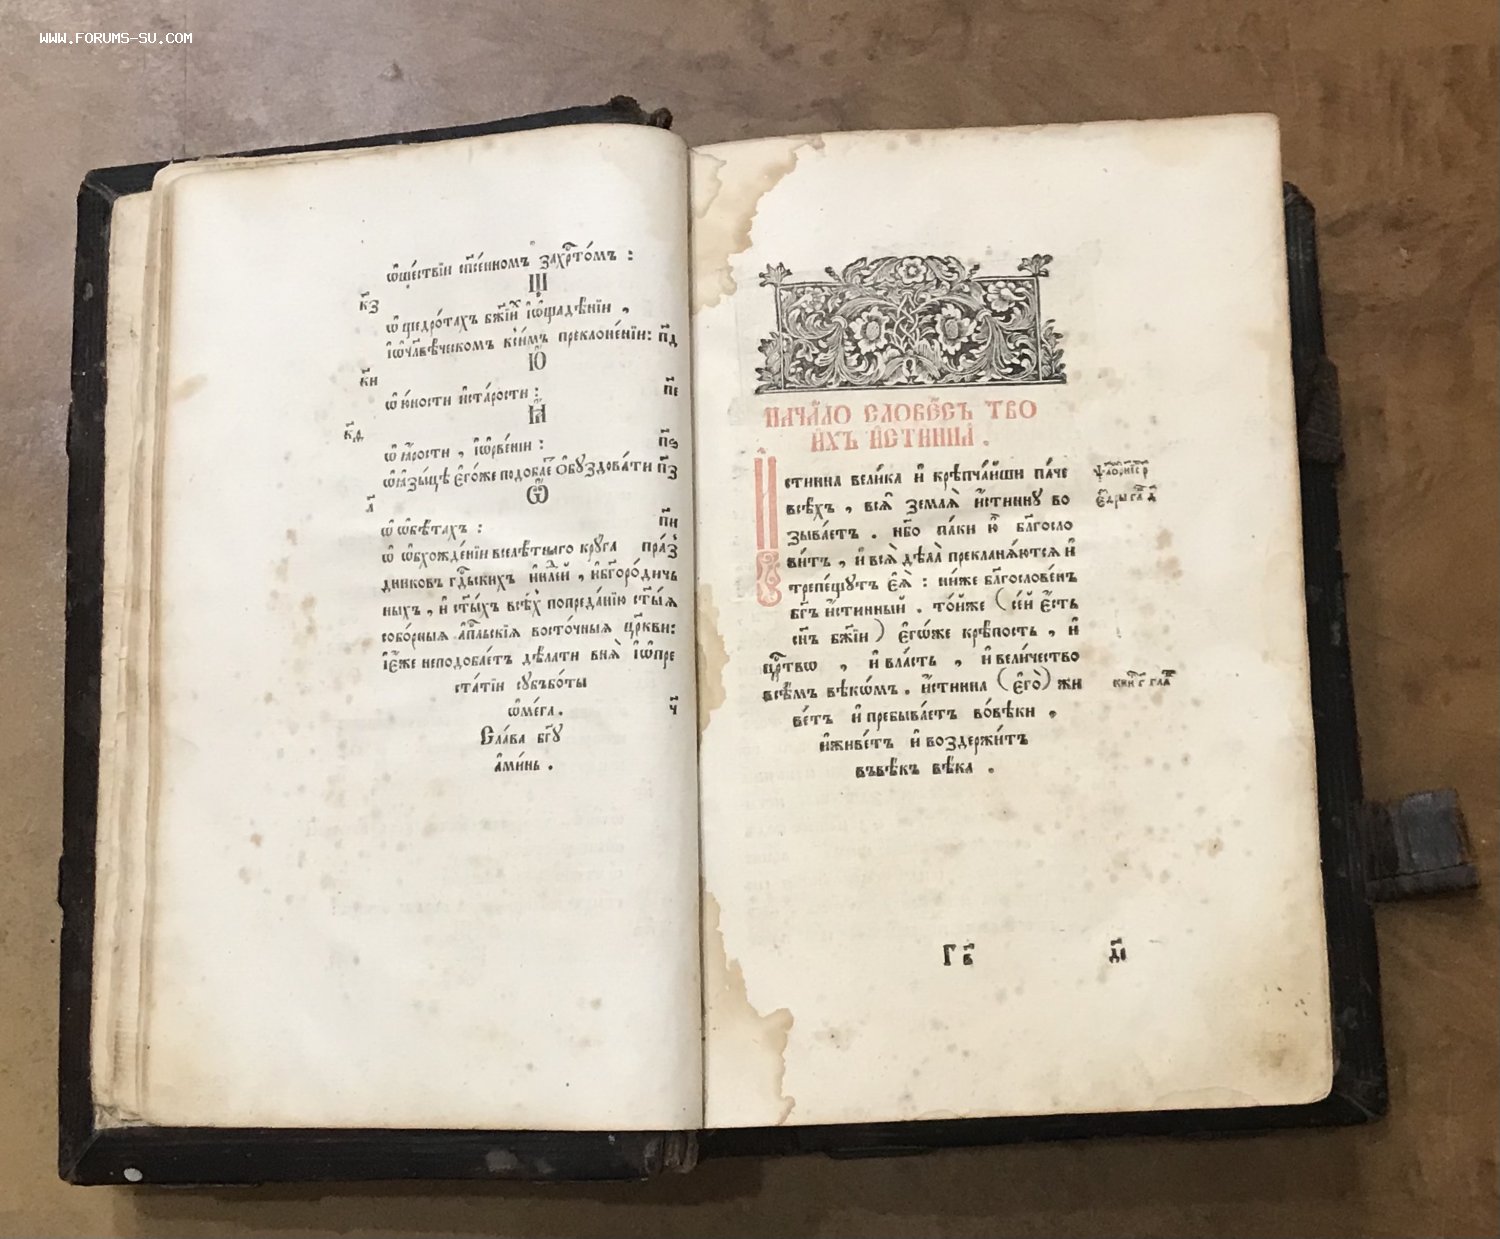 WWW.FORUMS-SU.COM
ѿшествїи сп҃се́нномъ захрⷭ҇то́мъ :
Щ
к҃з
ѡ҆ щедро́тахъ бж҃їиⷯ їѡ҆щаде́нїи ,
їѡ҆чл҃вѣ́ческомъ ксѝмъ преклоне́нїи: п҃д
Ю
к҃и
ѡ҆ ю҆́ности и҆ста́рости : п҃е
Ꙗ
к҃д
ѡ҆ ꙗ҆́рости , їѡ҆рве́нїи : п҃ѕ
ѡ҆ ꙗ҆зы́цѣ є҆го́же подоба́етъ ѻ҆буздова́ти п҃з
Ѿ
л҃
ѡ҆ ѡ҆бѣ́тахъ : п҃и
ѡ҆ ѡ҆бхожде́нїи вселѣ́тнаго круга пра́з
дниковъ гдⷭ҇ьскихъ и҆нлⷣей , и҆бг҃оро́дичъ
ныхъ , и҆ ст҃ы́хъ всѣ́хъ попреда́нїю ст҃ы́ѧ
собо́рныѧ а҆пⷭ҇льскїѧ восто́чныѧ цр҃кви:
ї є҆́же неподоба́етъ дѣ́лати внѧ̀ їѡ҆пре
ста́тїи субъбо́ты
ѡ҆ме́га . ч҃
Сла́ва бг҃у
а҆ми́нь .
НАЧА́ЛО СЛОВЕ́СЪ ТВО
ИХЪ И҆́СТИННА .
И҆
стинна вели́ка и҆ крѣпча́йши па́че
всѣ́хъ , всѧ̀ землѧ̀ и҆́стинну во
зыва́етъ . нб҃о па́ки ю҆̀ бл҃госло
ви́тъ , и҆ всѧ̀ дѣла̀ прекланѧ́ютсѧ и҆
трепе́щутъ є҆ѧ̀ : ни́же бл҃гослове́нъ
бг҃ъ и҆́стинный . то́йже (се́й є҆́сть
сн҃ъ бж҃їи) є҆гѡ́же крѣ́пость , и҆
црⷭ҇тво , и҆ вла́сть , и҆ вели́чество
всѣ́мъ вѣкѡ́мъ . и҆́стинна (є҆гѡ̀) жи
ве́тъ и҆ пребыва́етъ во́вѣки ,
и҆живе́тъ и҆ воздержи́тъ
въвѣ́къ вѣ́ка .
Г в҃
д҃і